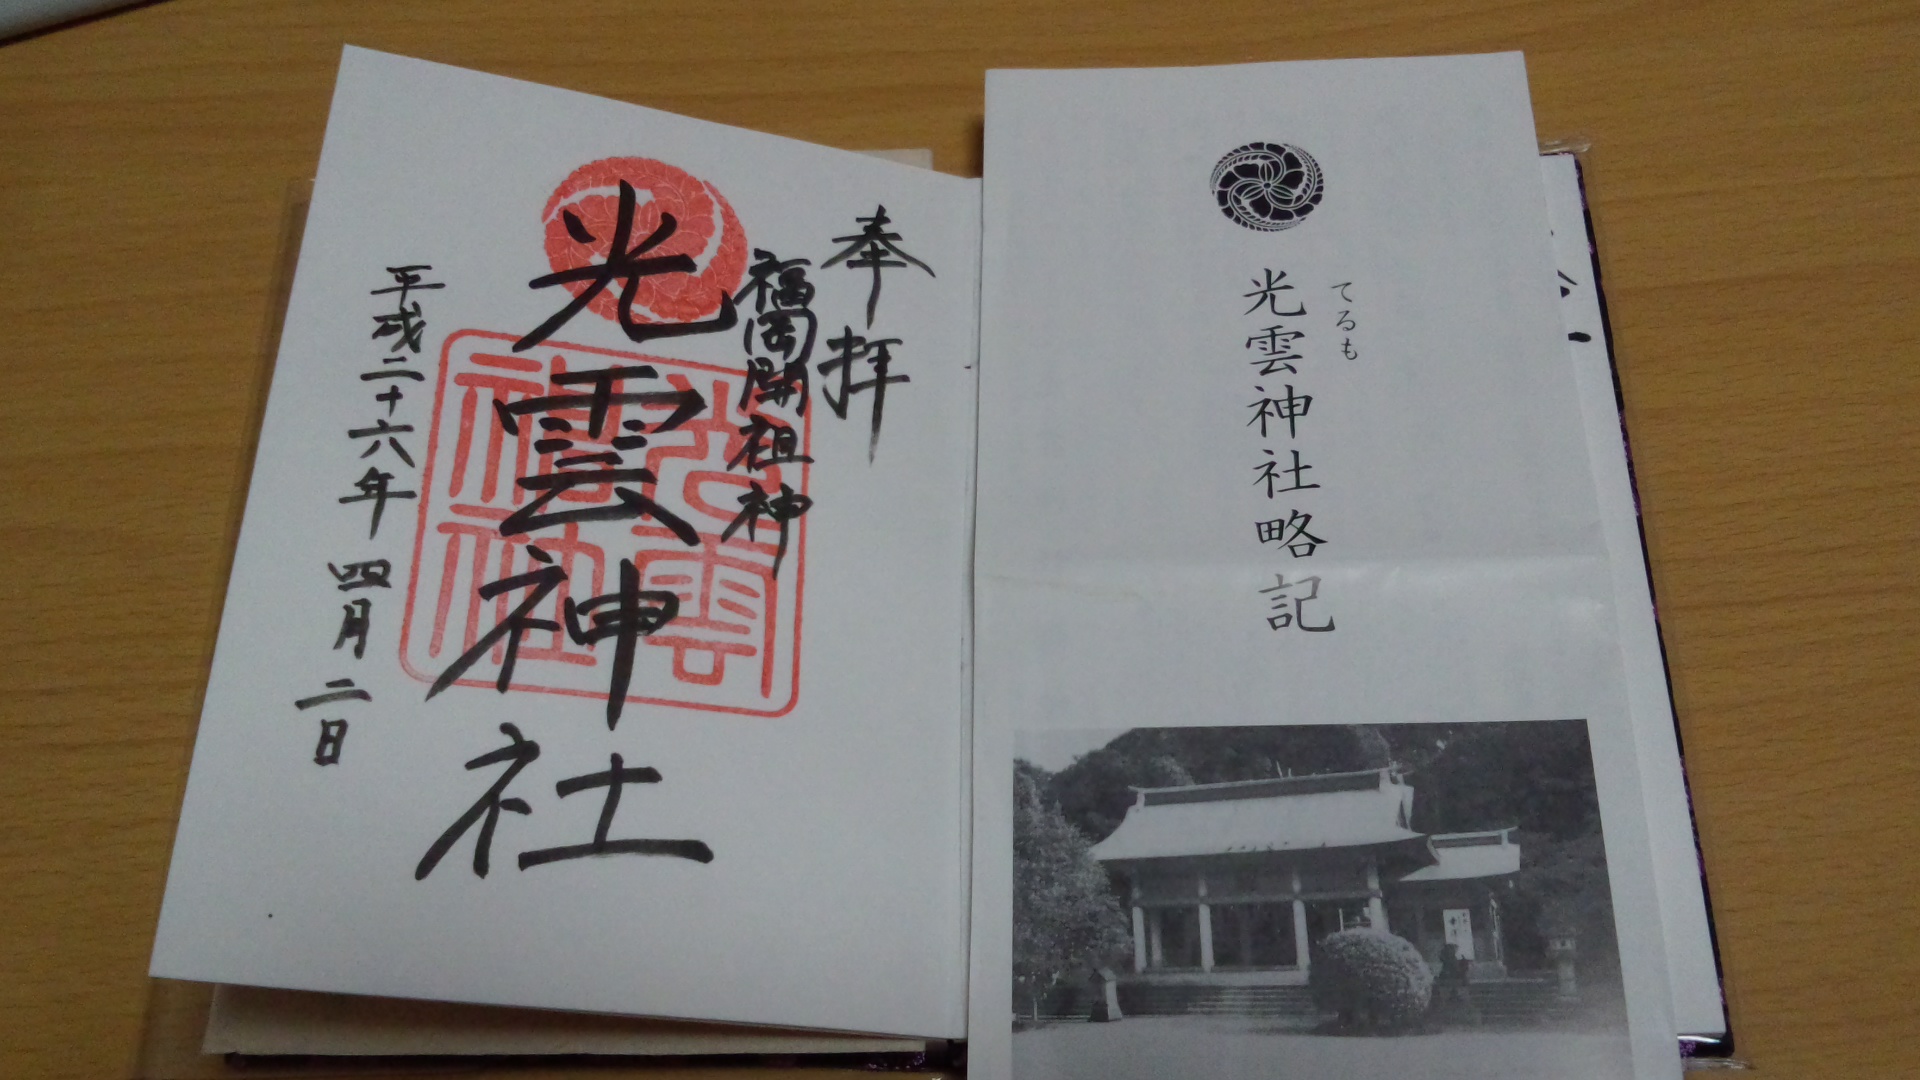 奉拝
福岡開祖神
光雲神社
光雲神社
平成二十六年 四月 二日
てるも
光雲神社略記